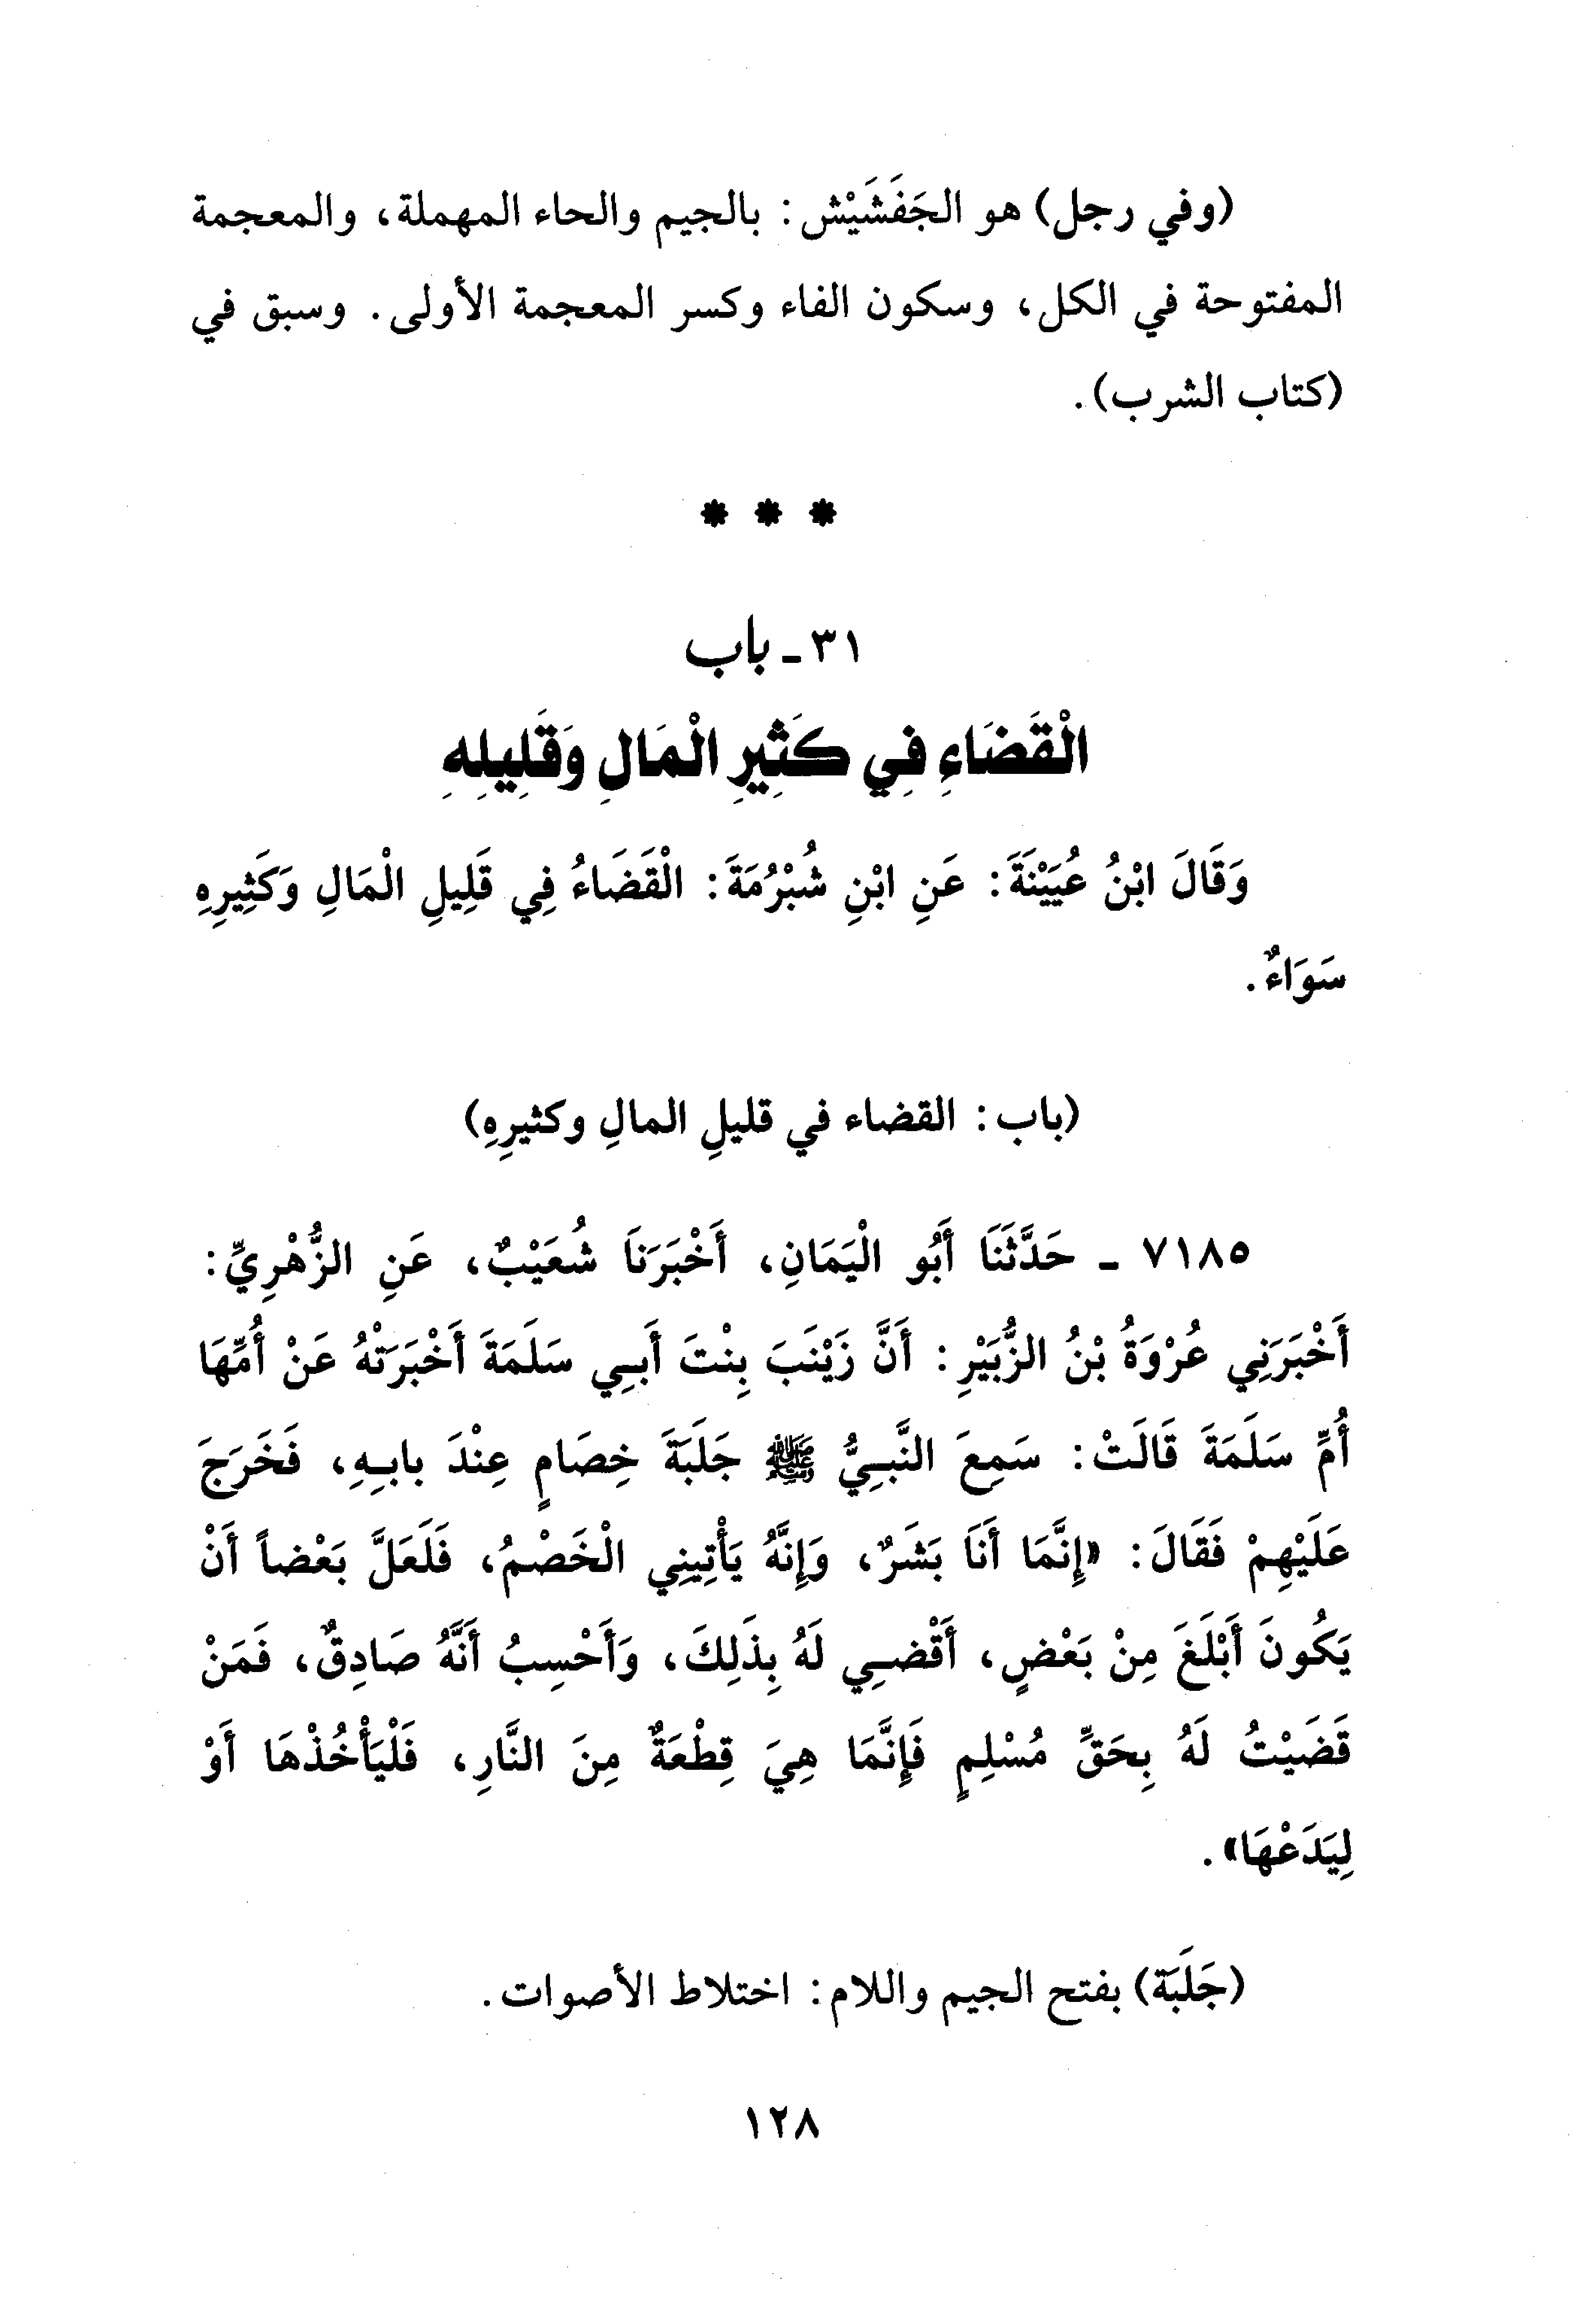 (وفي رجل) هو الجَفَشَيْش: بالجيم والحاء المهملة، والمعجمة
المفتوحة في الكل، وسكون الفاء وكسر المعجمة الأولى. وسبق في
(كتاب الشرب).
* * *
٣١ - باب
الْقَضَاءِ فِي كَثِيرِ الْمَالِ وَقَلِيلِهِ
وَقَالَ ابْنُ عُيَيْنَةَ: عَنِ ابْنِ شُبْرُمَةَ: الْقَضَاءُ فِي قَلِيلِ الْمَالِ وَكَثِيرِهِ
سَوَاءٌ.
(باب: القضاء في قليلِ المالِ وكثيرِهِ)
٧١٨٥ - حَدَّثَنَا أَبُو الْيَمَانِ، أَخْبَرَنَا شُعَيْبٌ، عَنِ الزُّهْرِيِّ:
أَخْبَرَنِي عُرْوَةُ بْنُ الزُّبَيْرِ: أَنَّ زَيْنَبَ بِنْتَ أَبِي سَلَمَةَ أَخْبَرَتْهُ عَنْ أُمِّهَا
أُمِّ سَلَمَةَ قَالَتْ: سَمِعَ النَّبِيُّ ﷺ جَلَبَةَ خِصَامٍ عِنْدَ بابِهِ، فَخَرَجَ
عَلَيْهِمْ فَقَالَ: «إِنَّمَا أَنَا بَشَرٌ، وَإِنَّهُ يَأْتِينِي الْخَصْمُ، فَلَعَلَّ بَعْضاً أَنْ
يَكُونَ أَبْلَغَ مِنْ بَعْضٍ، أَقْضِي لَهُ بِذَلِكَ، وَأَحْسِبُ أَنَّهُ صَادِقٌ، فَمَنْ
قَضَيْتُ لَهُ بِحَقِّ مُسْلِمٍ فَإِنَّمَا هِيَ قِطْعَةٌ مِنَ النَّارِ، فَلْيَأْخُذْهَا أَوْ
لِيَدَعْهَا».
(جَلَبَة) بفتح الجيم واللام: اختلاط الأصوات.
١٢٨